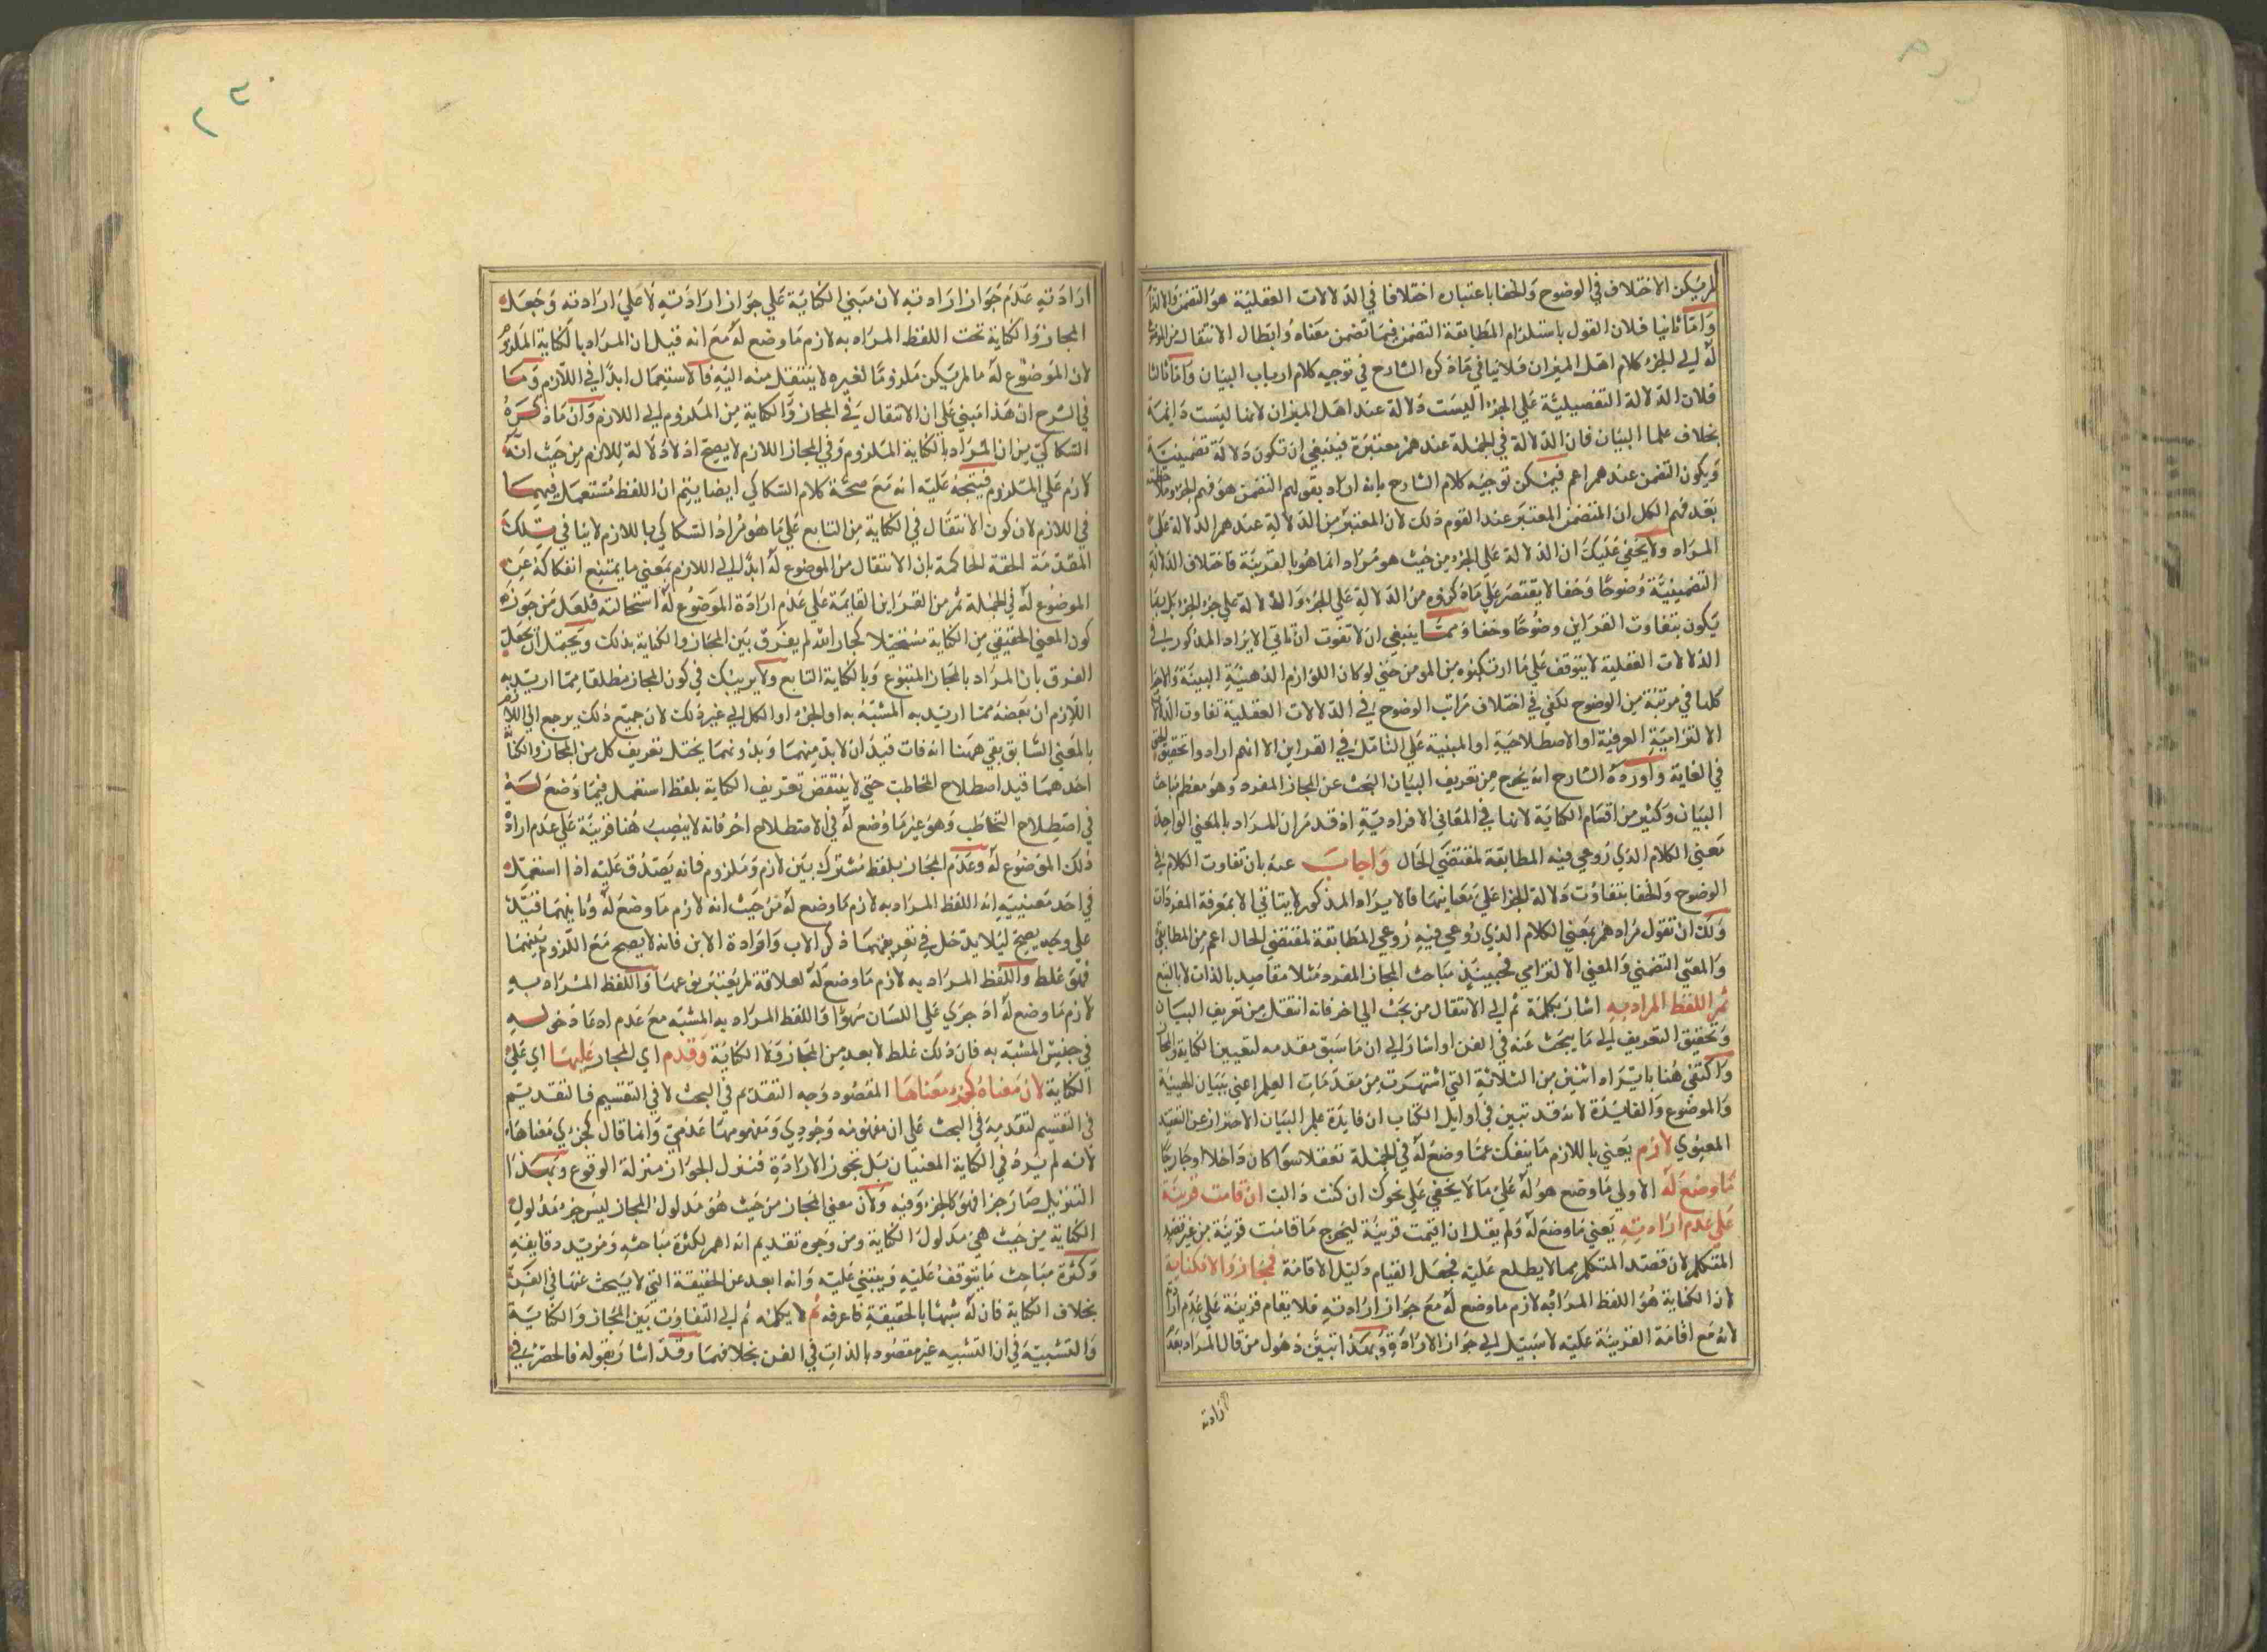 لم يكن الاختلاف في الوضوح والخفا باعتباره اختلافا في الدلالات العقلية هو التضمن والالتزا
واما ثانيا فلان القول باستلزام المطابقة التضمن فيما تضمن معناه وابطال الانتقال من الموضوع
له الي الجزء كلام اهل الميزان فلا ينافي ما ذكره الشارح في توجيه كلام ارباب البيان واما ثالثا
فلان الدلالة التفصيلية علي الجزء اليست دلالة عند اهل الميزان لانها ليست دايمة
بخلاف علما البيان فان الدلالة في الجملة عندهم معتبرة فينبغي ان تكون دلالة تضمنية
ويكون التضمن عندهم اعم فيمكن توجيه كلام الشارح بانه اراد بقولهم التضمن هو فهم الجزء وملاحظته
بعد فهم الكل ان المتضمن المعتبر عند القوم ذلك لان المعتبر من الدلالة عندهم الدلالة علي
المراد ولا يخفي عليك ان الدلالة علي الجزء من حيث هو مراد انما هو بالقرينة فاختلاف الدلالة
التضمنية وضوحا وخفا لا يقتصر علي ما ذكروه من الدلالة علي الجزء والدلالة علي جزء الجزء بل ربما
يكون بتفاوت القراين وضوحا وخفا ومما ينبغي ان لا تفوت ان تاتي الايراد المذكور في
الدلالات العقلية لا يتوقف علي ما ارتكبوه من المومن حتي لو كان اللوازم الذهنية البينة والاجزا
كلها في مرتبة من الوضوح لكفي في اختلاف مراتب الوضوح في الدلالات العقلية تفاوت الدلالات
الالتزامية العرفية او الاصطلاحية او المبنية علي التامل في القراين الا انهم ارادوا تحقيق الحق
في الغاية واورده الشارح انه يخرج من تعريف البيان البحث عن المجاز المفرد وهو معظم مباحث
البيان وكثير من اقسام الكناية لانها في المعاني الافرادية اذ قد مر ان المراد بالمعني الواحد
معني الكلام الذي روعي فيه المطابقة لمقتضي الحال واجاب عنه بان تفاوت الكلام في
الوضوح والخفا بتفاوت دلالة اجزا علي معانيها فالايراد المذكور لا يتاتي الا بمعرفة المفردات
ولك ان تقول مرادهم بمعني الكلام الذي روعي فيه روعي المطابقة لمقتضي الحال اعم من المطابقي
والمعني التضمني والمعني الالتزامي فحينئذ مباحث المجاز المفرد مثلا مقاصد بالذات لا بالتبع
ثم اللفظ المراد به اشار بكلمة ثم الي الانتقال من بحث الي اخر فانه انتقل من تعريف البيان
وتحقيق التعريف الي ما يبحث عنه في الفن او اشار الي ان ما سبق مقدمه لتعيين الكناية والمجاز
واكتفي هنا بايراد اثنين من الثلاثة التي اشتهرت من مقدمات العلم اعني ببيان الهيئة
والموضوع والفايدة لانه قد تبين في اوايل الكتاب ان فايدة علم البيان الاحتراز عن التعقيد
المعنوي لازم يعني باللازم ما ينفك عما وضع له في الجملة تعقلا سوا كان داخلا او خارجا
ما وضع له الاولي ما وضع هو له علي ما لا يخفي علي نحوك ان كنت ذا لب ان قامت قرينة
علي عدم ارادته يعني ما وضع له ولم يقل ان اقيمت قرينة ليخرج ما قامت قرينة من غير قصد
المتكلم لان قصد المتكلم مما لا يطلع عليه فجعل القيام دليل الاقامة فمجاز والا فكناية
لان الكناية هو اللفظ المراد به لازم ما وضع له مع جواز ارادته فلا يقام قرينة علي عدم ارادته
لانه مع اقامة القرينة عليه لا سبيل الي جواز الارادة وبهذا تبين ذهول من قال المراد بعدم
ارادته
ارادته عدم جواز ارادته لان مبني الكناية علي جواز ارادته لا علي ارادته وجعل
المجاز والكناية تحت اللفظ المراد به لازم ما وضع له مع انه قيل ان المراد بالكناية الملزوم
لان الموضوع له ما لم يكن ملزوما لغيره لا ينتقل منه اليه فالاستعمال ابدا في اللازم وما
في الشرح ان هذا مبني علي ان الانتقال في المجاز والكناية من الملزوم الي اللازم وان ما ذكره
السكاكي من ان المراد بالكناية الملزوم وفي المجاز اللازم لا يصح اذ لا دلالة للازم من حيث انه
لازم علي الملزوم فيتجه عليه انه مع صحة كلام السكاكي ايضا يتم ان اللفظ مستعمل فيهما
في اللازم لان كون الانتقال في الكناية من التابع علي ما هو مراد السكاكي باللازم لا ينافي تلك
المقدمة الحقة الحاكمة بان الانتقال من الموضوع له ابدا الي اللازم بمعني ما يمتنع انفكاكه عن
الموضوع له في الجملة ثم من القراين القايمة علي عدم ارادة الموضوع له استحالته فلعل من جوزه
كون المعني الحقيقي من الكناية مستحيلا كجار الله لم يفرق بين المجاز والكناية بذلك ويحتمل ان يجعل
الفرق بان المراد بالمجاز المتبوع وبالكناية التابع ولا يريبك في كون المجاز مطلقا مما اريد به
اللازم ان بعضه مما اريد به المشبه به او الجزء او الكل الي غير ذلك لان جميع ذلك يرجع الي اللازم
بالمعني السابق بقي ههنا انه فات قيد ان لا بد منهما وبدونهما يختل تعريف كل من المجاز والكناية
احدهما قيد اصطلاح التخاطب حتي لا ينتقض تعريف الكناية بلفظ استعمل فيما وضع له
في اصطلاح التخاطب وهو غير ما وضع له في الاصطلاح اخر فانه لا ينصب هنا قرينة علي عدم اراده
ذلك الموضوع له وعدم المجاز بلفظ مشترك بين لازم وملزوم فانه يصدق عليه اذا استعمل
في احد معنييه انه اللفظ المراد به لازم ما وضع له من حيث انه لازم ما وضع له وثانيهما قيد
علي وجه يصح ليلا يدخل في تعريفهما ذكر الاب وارادة الابن فانه لا يصح مع اللزوم بينهما
فهو غلط واللفظ المراد به لازم ما وضع له لعلاقة لم يعتبر نوعها واللفظ المراد به
لازم ما وضع له اذ جري علي اللسان سهوا واللفظ المراد به المشبه مع عدم ادعا دخوله
في جنس المشبه به فان ذلك غلط لا بعد من المجاز ولا الكناية وقدم اي المجاز عليها اي علي
الكناية لان معناه كجزء معناها المقصود وجه التقدم في البحث لا في التقسيم فالتقديم
في التقسيم لتقدمه في البحث علي ان مفهومه وجودي ومفهومها عدمي وانما قال كجزء معناها
لانه لم يرد في الكناية المعنيان بل تجوز الارادة فنزل الجواز منزلة الوقوع وبهذا
التنزيل صار جزا فهو كالجزء وفيه ولان معني المجاز من حيث هو مدلول المجاز ليس جزء مدلول
الكناية من حيث هي مدلول الكناية ومن وجوه تقديم انه اهم لكثرة مباحثه ومزيد دقايقه
وكثرة مباحث ما يتوقف عليه ويبتني عليه وانه ابعد عن الحقيقة التي لا يبحث عنها في الفن
بخلاف الكناية فان له شبها بالحقيقة فاعرفه ثم لا يكلمه ثم الي التفاوت بين المجاز والكناية
والتشبيه في ان التشبيه غير مقصود بالذات في الفن بخلافهما وقد اشار بقوله فالحصر في